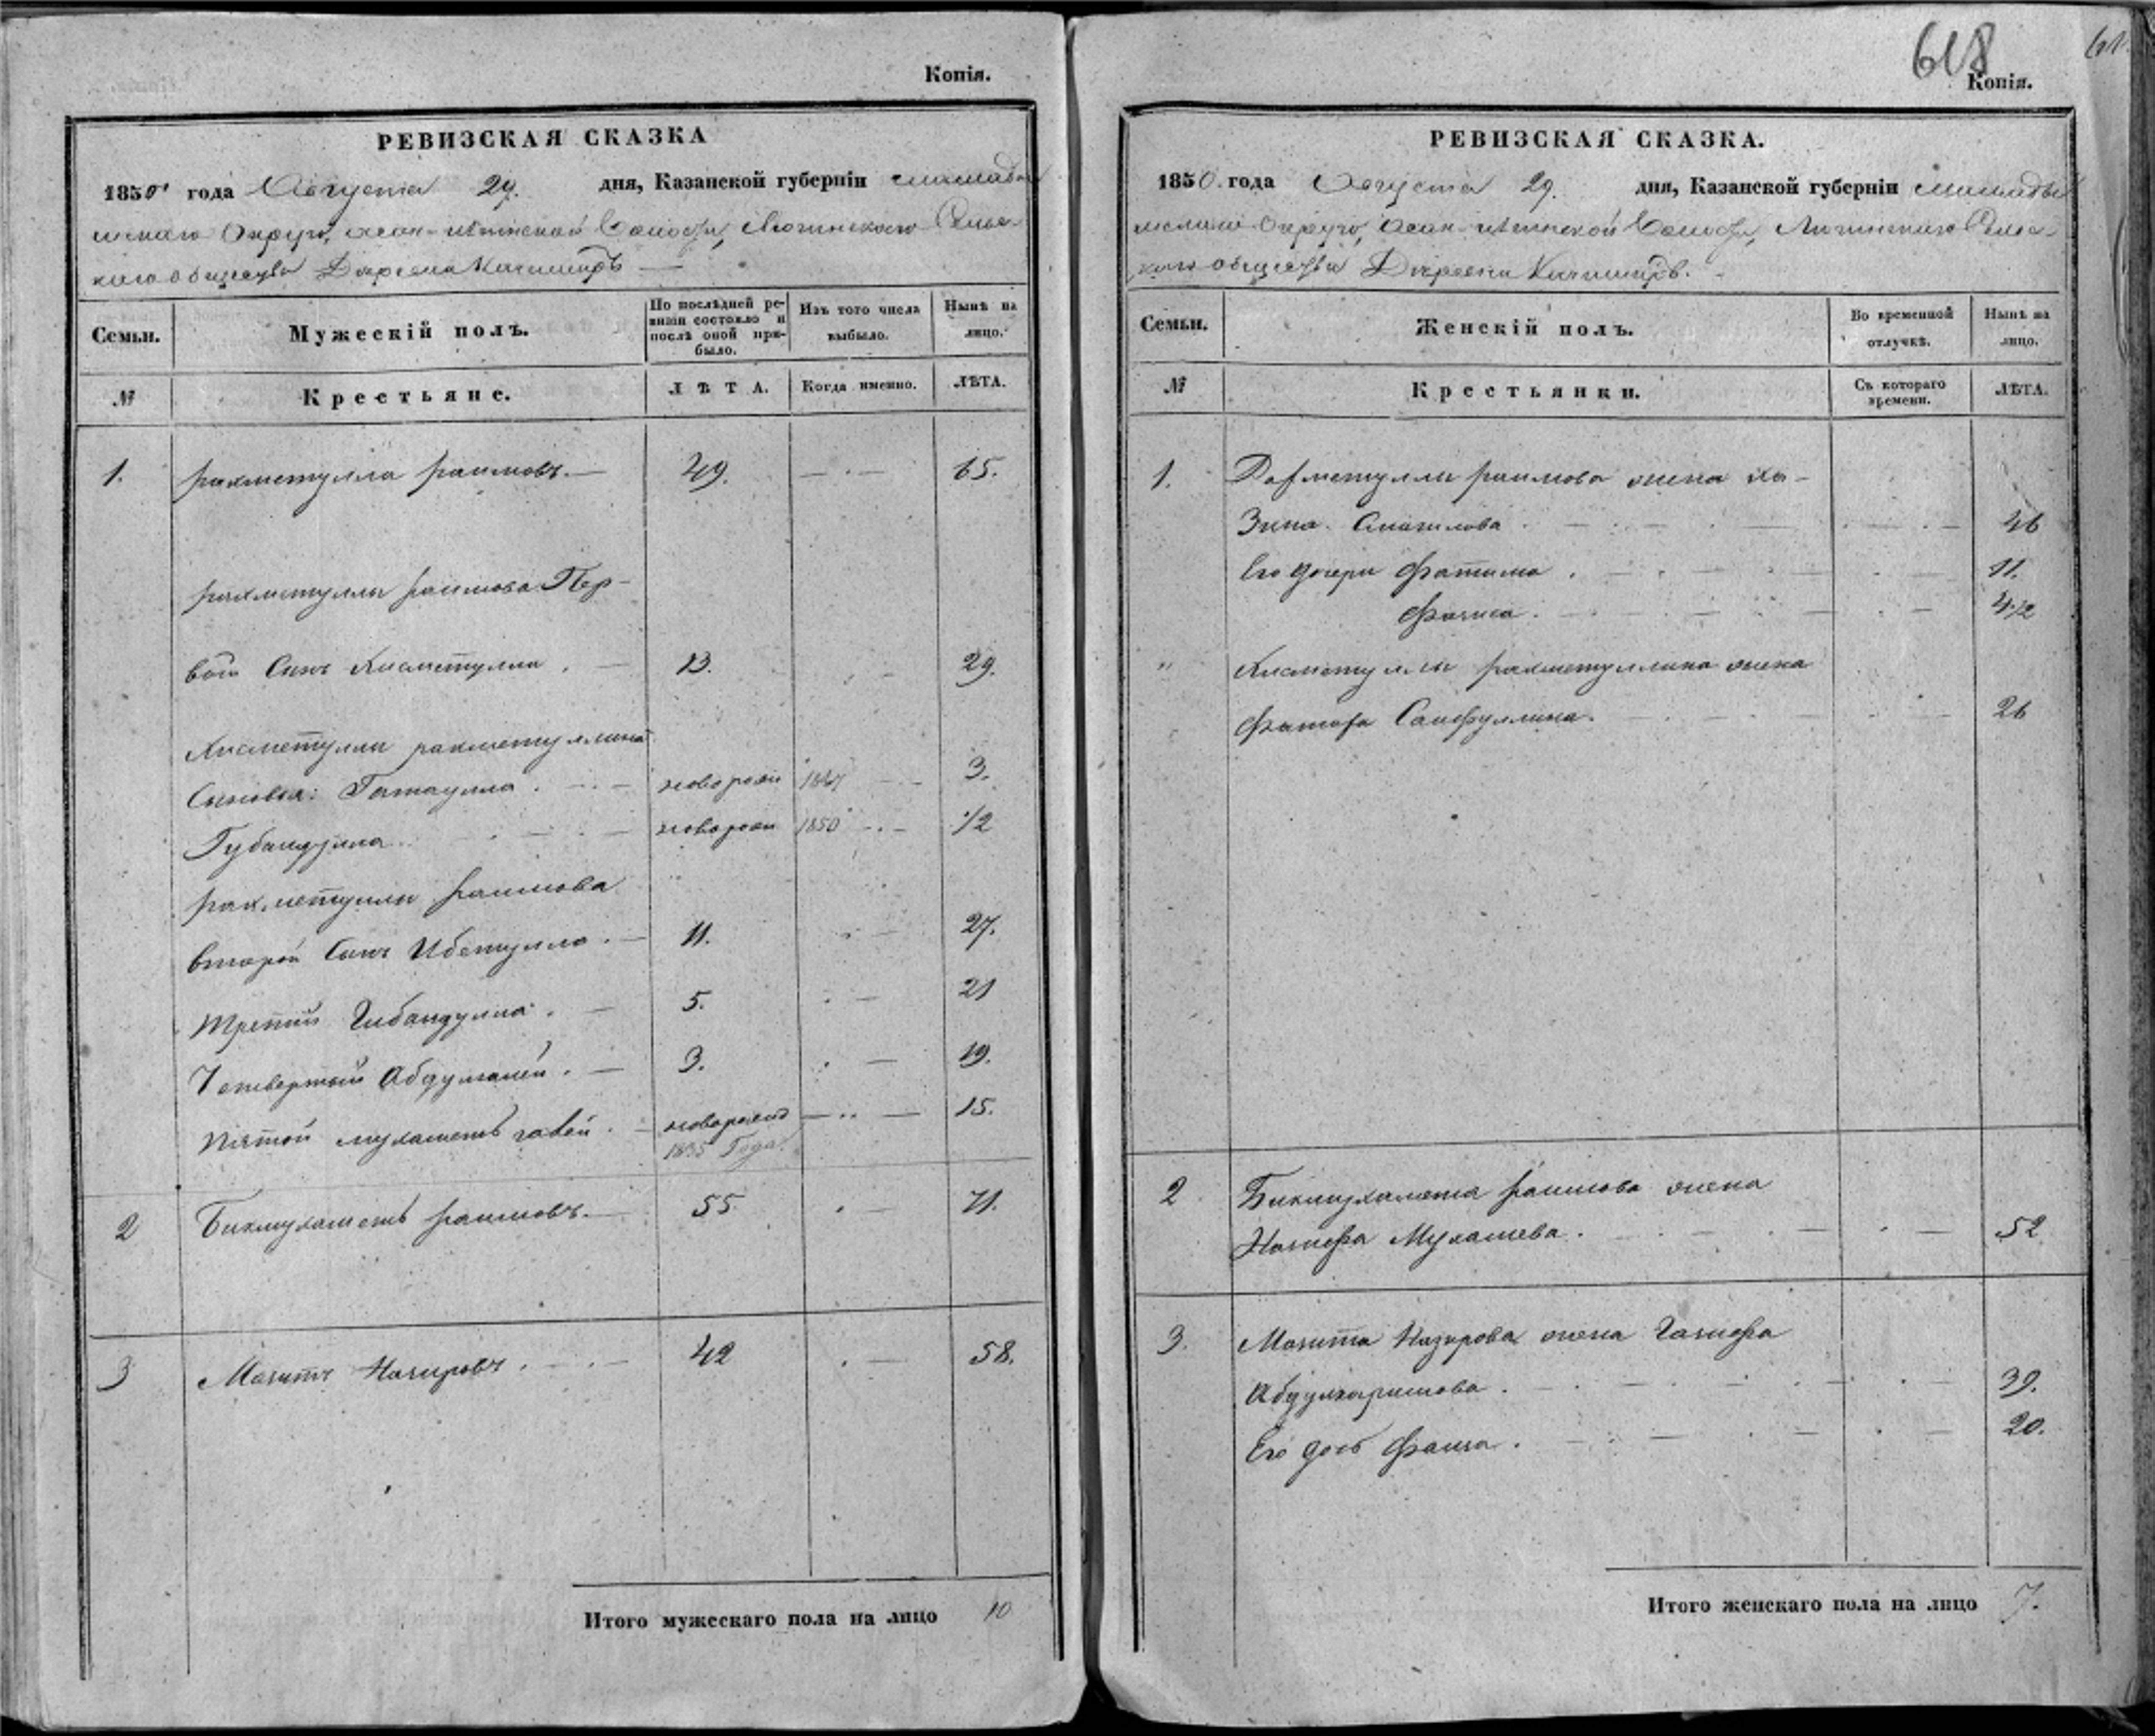 Копія.
РЕВИЗСКАЯ СКАЗКА
1850 года Августа 29. дня, Казанской губерніи мамады
шскаго Округа, Асан-илгинской Волости, Сельс-
каго общества Деревни Качимиръ
Семьи. Мужескій полъ. По послѣдней ре- визіи состояло и послѣ оной при- было. Изъ того числа выбыло. Нынѣ на лицо.
№ Крестьяне. ЛѢТА. Когда именно. ЛѢТА.
1. рахметулла раимовъ. 49. 65.
рахметуллы раимова Пер-
вой Сынъ Хисметулла 13. 29.
Хисметуллы рахметуллина
Сыновья: Гатаулла новорож 1847 3.
Губайдулла новорож 1850 1/2
рахметуллы раимова
второй Сынъ Ибетулла 11. 27.
Третій Гибайдулла 5. 21
Четвертый Абдулганей 3. 19.
Пятой мухаметъ новорожд 15.
1835 Года
2 Бикмухаметъ раимовъ. 55 71.
3 Мазитъ Назировъ 42 58.
Итого мужескаго пола на лицо 10
618
61
Копія.
РЕВИЗСКАЯ СКАЗКА.
1850. года Августа 29. дня, Казанской губерніи мамады
шскаго Округа, Асан-илгинской Волости, Сельс-
каго общества Деревни Качимиръ.
Семьи. Женскій полъ. Во временной отлучкѣ. Нынѣ на лицо.
№ Крестьянки. Съ котораго времени. ЛѢТА.
1. раимова жена ха-
зина Смаилова 46
Его дочери Фатима 11.
Фагиса 4 1/2
" Хисметуллы рахметуллина жена
Сайфуллина. 26
2 Бикмухамета раимова жена
Мухашева. 52
3. Мазита Назирова жена
Абдулкаримова 39.
Его дочь Фаиза 20.
Итого женскаго пола на лицо 7.